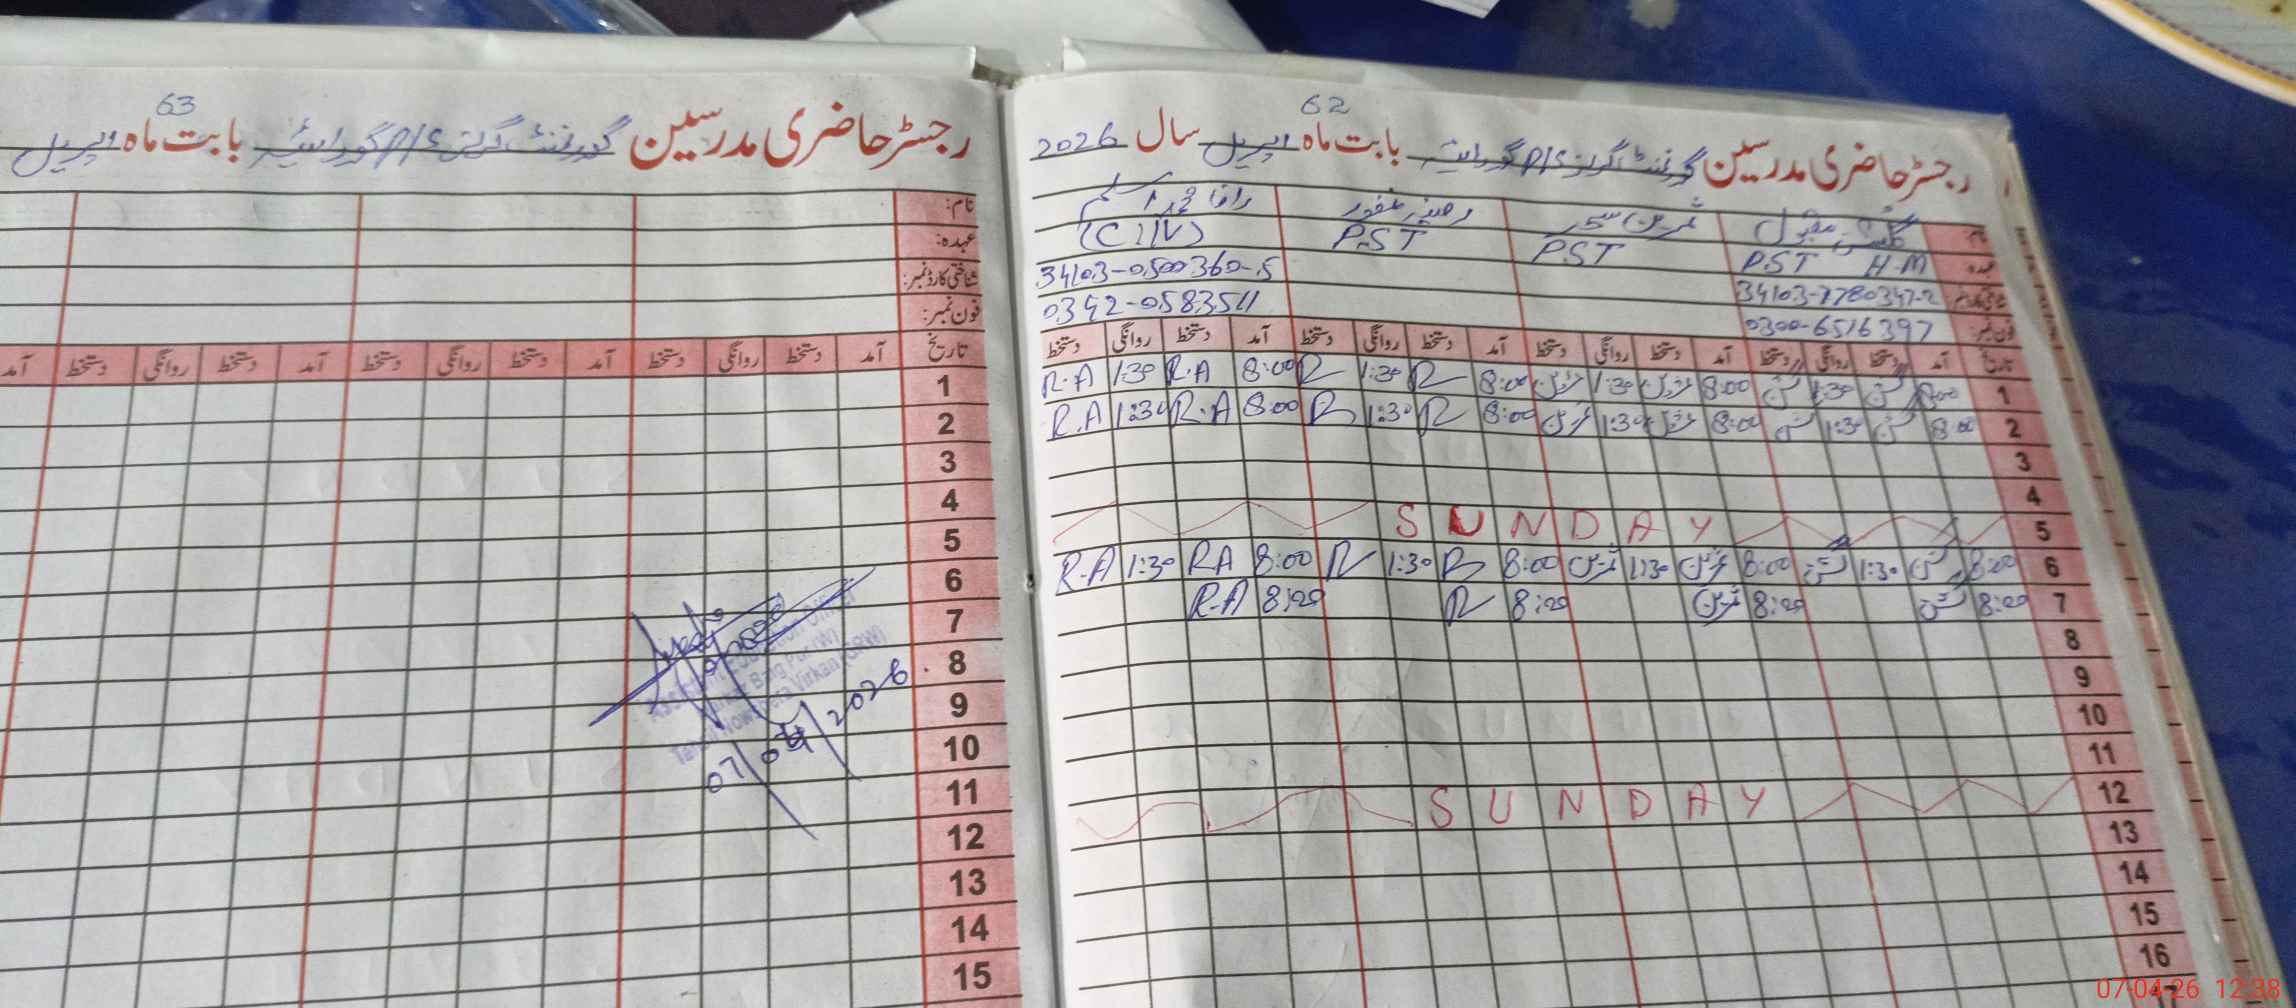 62
رجسٹر حاضری مدرسین گورنمنٹ گرلز P/S گوراٹیہ بابت ماہ اپریل سال 2026
نام: گلشن مقبول ثمرین سحر رضیہ غفور رانا محمد اسلم
عہدہ: PST H.M PST PST (C IIV)
شناختی کارڈ نمبر: 34103-7780347-2 34103-0500360-5
فون نمبر: 0300-6516397 0342-0583511
تاریخ آمد دستخط روانگی دستخط آمد دستخط روانگی دستخط آمد دستخط روانگی دستخط آمد دستخط روانگی دستخط
1 8:00 گلشن 1:30 گلشن 8:00 ثمرین 1:30 ثمرین 8:00 R 1:30 R 8:00 R.A 1:30 R.A
2 8:00 گلشن 1:30 گلشن 8:00 ثمرین 1:30 ثمرین 8:00 R 1:30 R 8:00 R.A 1:30 R.A
3
4
5 SUNDAY
6 8:00 گلشن 1:30 گلشن 8:00 ثمرین 1:30 ثمرین 8:00 R 1:30 R 8:00 RA 1:30 R.A
7 8:20 گلشن 8:20 ثمرین 8:20 R 8:20 R.A
8
9
10
11
12 SUNDAY
13
14
15
16
63
رجسٹر حاضری مدرسین گورنمنٹ گرلز P/S گوراٹیہ بابت ماہ اپریل
نام:
عہدہ:
شناختی کارڈ نمبر:
فون نمبر:
تاریخ آمد دستخط روانگی دستخط آمد دستخط روانگی دستخط آمد دستخط روانگی دستخط آمد
1
2
3
4
5
6
7
8
9
10
11
12
13
14
15
Education Officer
Virkan (GRW)
07/04/2026
07-04-26 12:38